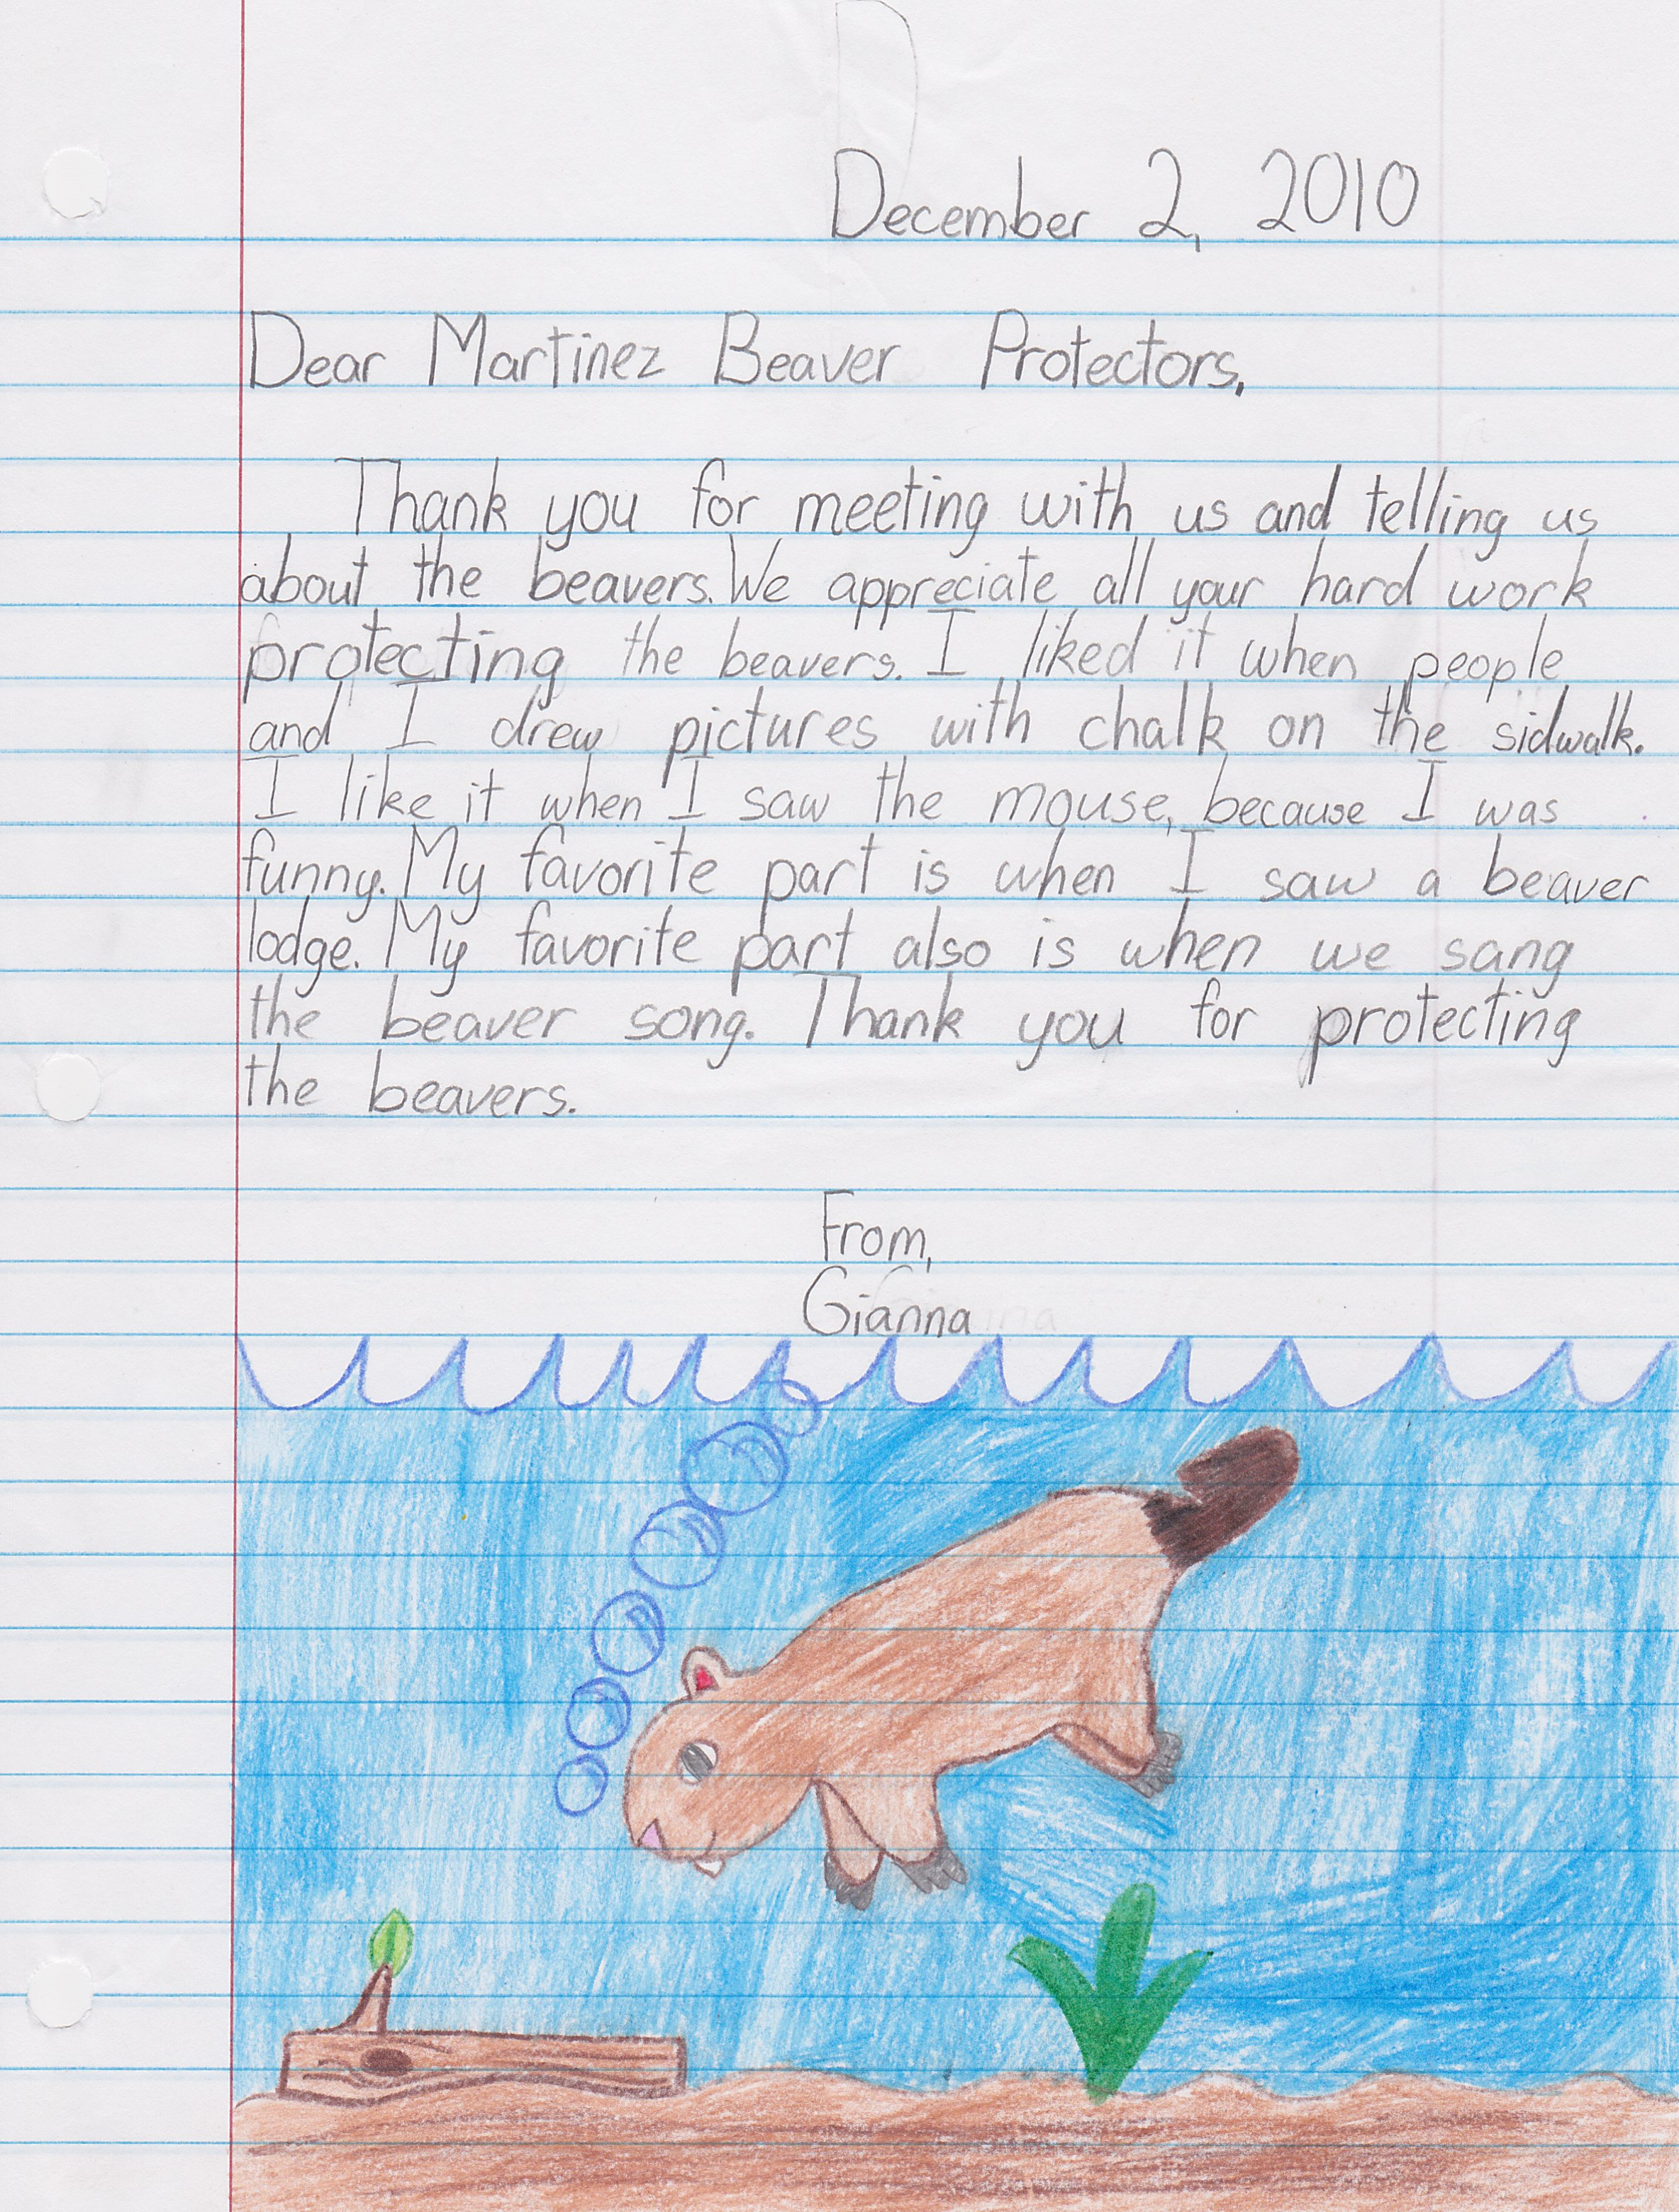 December 2, 2010
Dear Martinez Beaver Protectors,
Thank you for meeting with us and telling us
about the beavers. We appreciate all your hard work
protecting the beavers. I liked it when people
and I drew pictures with chalk on the sidwalk.
I like it when I saw the mouse, because I was
funny. My favorite part is when I saw a beaver
lodge. My favorite part also is when we sang
the beaver song. Thank you for protecting
the beavers.
From,
Gianna